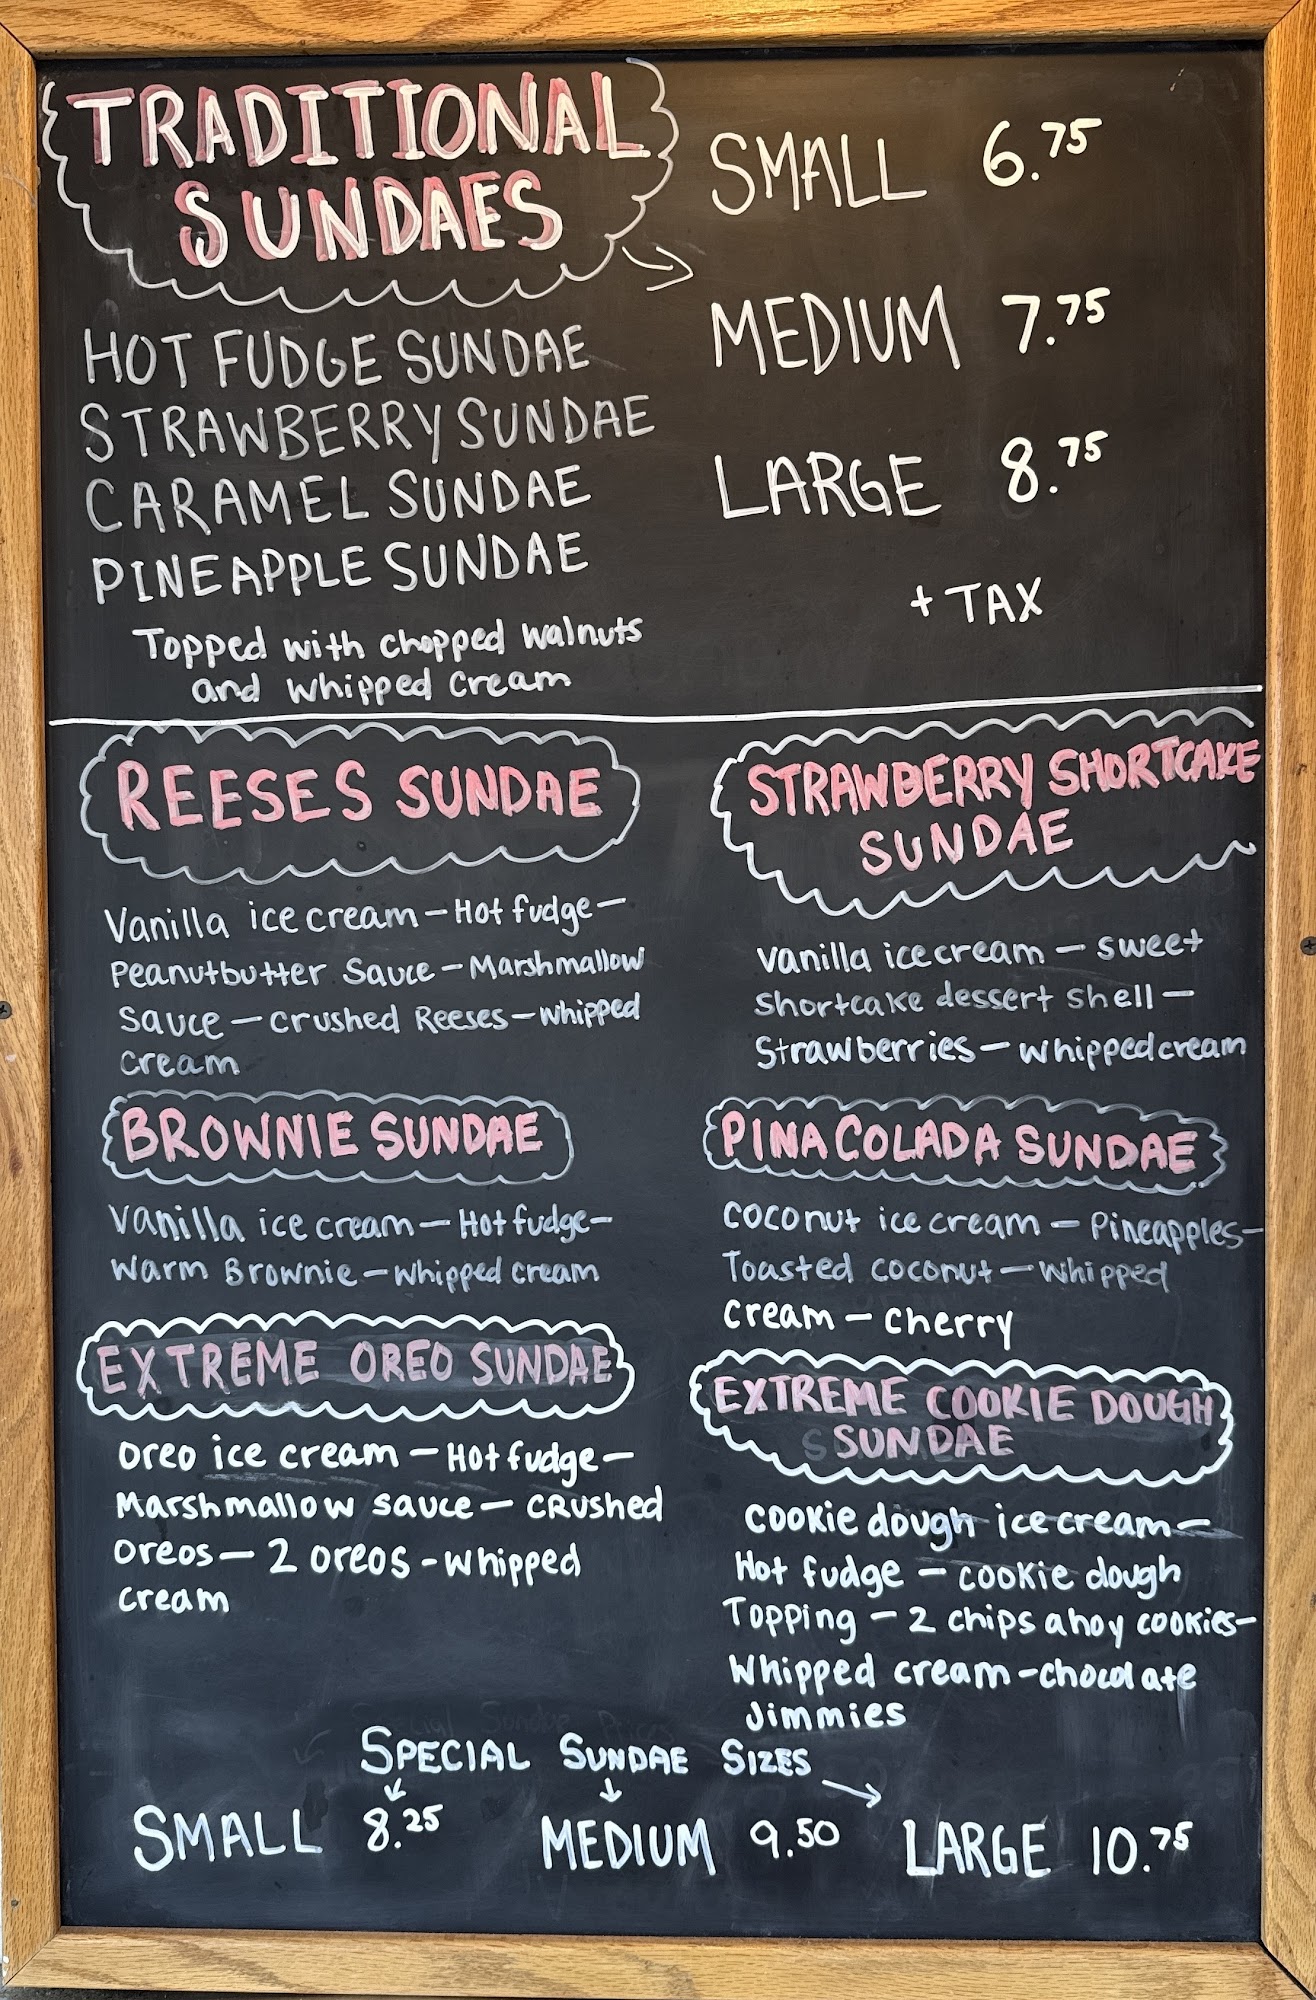 TRADITIONAL
SUNDAES
HOT FUDGE SUNDAE
STRAWBERRY SUNDAE
CARAMEL SUNDAE
PINEAPPLE SUNDAE
Topped with chopped walnuts
and whipped cream
SMALL 6.75
MEDIUM 7.75
LARGE 8.75
+ TAX
REESES SUNDAE
Vanilla ice cream – Hot fudge –
Peanutbutter Sauce – Marshmallow
Sauce – crushed Reeses – whipped
cream
STRAWBERRY SHORTCAKE
SUNDAE
Vanilla ice cream – sweet
shortcake dessert shell –
Strawberries – whipped cream
BROWNIE SUNDAE
Vanilla ice cream – Hot fudge –
Warm Brownie – whipped cream
PINA COLADA SUNDAE
coconut ice cream – Pineapples –
Toasted coconut – whipped
cream – cherry
EXTREME OREO SUNDAE
oreo ice cream – Hot fudge –
Marshmallow sauce – crushed
oreos – 2 oreos - whipped
cream
EXTREME COOKIE DOUGH
SUNDAE
cookie dough ice cream –
Hot fudge – cookie dough
Topping – 2 chips ahoy cookies –
whipped cream – chocolate
Jimmies
SPECIAL SUNDAE SIZES
SMALL 8.25 MEDIUM 9.50 LARGE 10.75